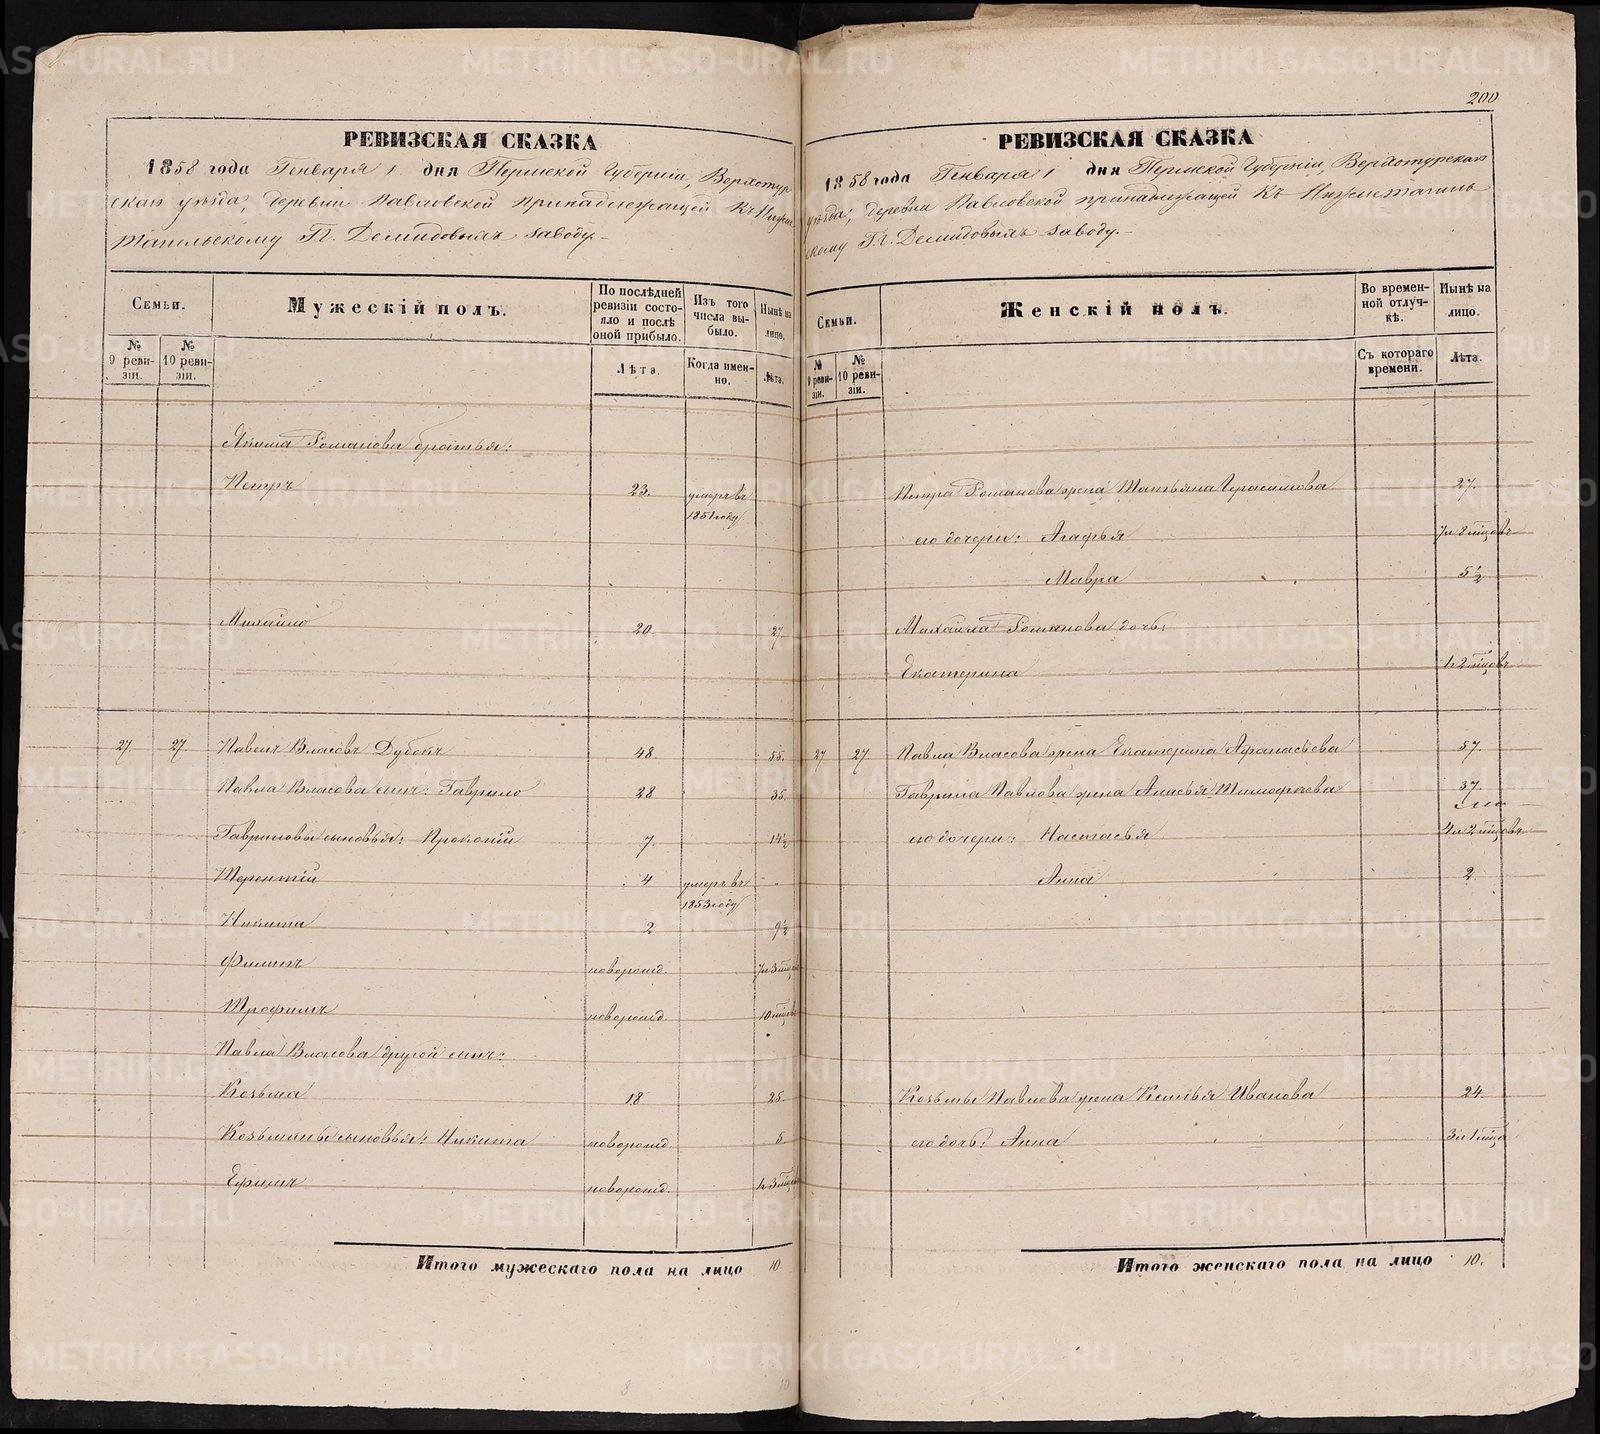 200
РЕВИЗСКАЯ СКАЗКА
1858 года Генваря 1 дня Пермской Губерніи, Верхотур
скаго уѣзда, деревни Павловской принадлежащей Къ Нижне
тагильскому Гг. Демидовыхъ заводу.-
Семьи.
Мужескій полъ.
По послѣдней ревизіи состояло и послѣ оной прибыло.
Изъ того числа выбыло.
Нынѣ на лицо.
№ 9 ревизіи.
№ 10 ревизіи.
Лѣта.
Когда именно.
Лѣта.
Якима Романова братья:
Петръ 23. умеръ въ
1851 году
Михайло 20 27
27. 27. Павелъ Власовъ Дубокъ 48 55.
Павла Власова сынъ: Гаврило 28 35.
Гавриловы сыновья: Прокопій 7. 14½
Терентій 4 умеръ въ -
1853 году
Никита 2 9½
Филипъ новорожд. 7 и 3 мѣсяц
Трофимъ новорожд. 10 мѣсяц
Павла Власова другой сынъ:
Козьма 18 25.
Козьмины сыновья: Никита новорожд. 5.
Ефимъ новорожд. 1 и 3 мѣсяц
Итого мужескаго пола на лицо 10
РЕВИЗСКАЯ СКАЗКА
1858 года Генваря 1 дня Пермской Губерніи, Верхотурскаго
уѣзда, деревни Павловской принадлежащей Къ Нижнетагиль
скому Гг. Демидовыхъ заводу.-
Семьи.
Женскій полъ.
Во временной отлучкѣ.
Нынѣ на лицо.
№ 9 ревизіи.
№ 10 ревизіи.
Съ котораго времени.
Лѣта.
Петра Романова жена Татьяна Герасимова 27.
его дочери: Агафья 7 и 8 мѣсяцовъ
Мавра 5½
Михайла Романова дочь:
Екатерина 1 и 2 мѣсяцовъ
27 27. Павла Власова жена Екатерина Афанасьева 57.
Гаврила Павлова жена Анисья Тимофеева 37.
его дочери: Настасья 4 и 2 мѣсяцовъ
Анна 2.
Козьмы Павлова жена Ксенья Иванова 24.
его дочь: Анна 3 и 1 мѣсяца
Итого женскаго пола на лицо 10.
METRIKI.GASO-URAL.RU